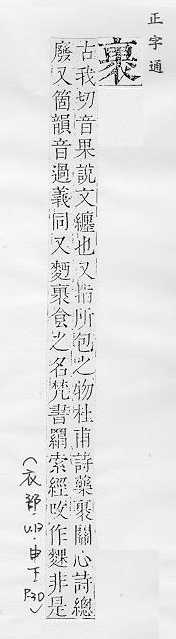 正字通
裹
古我切音果說文纏也又指所包之物杜甫詩藥裹關心詩總
廢又箇韻音過義同又麪裹食之名梵書羂索經攺作䴹非是
(衣部.U13.申下P30)